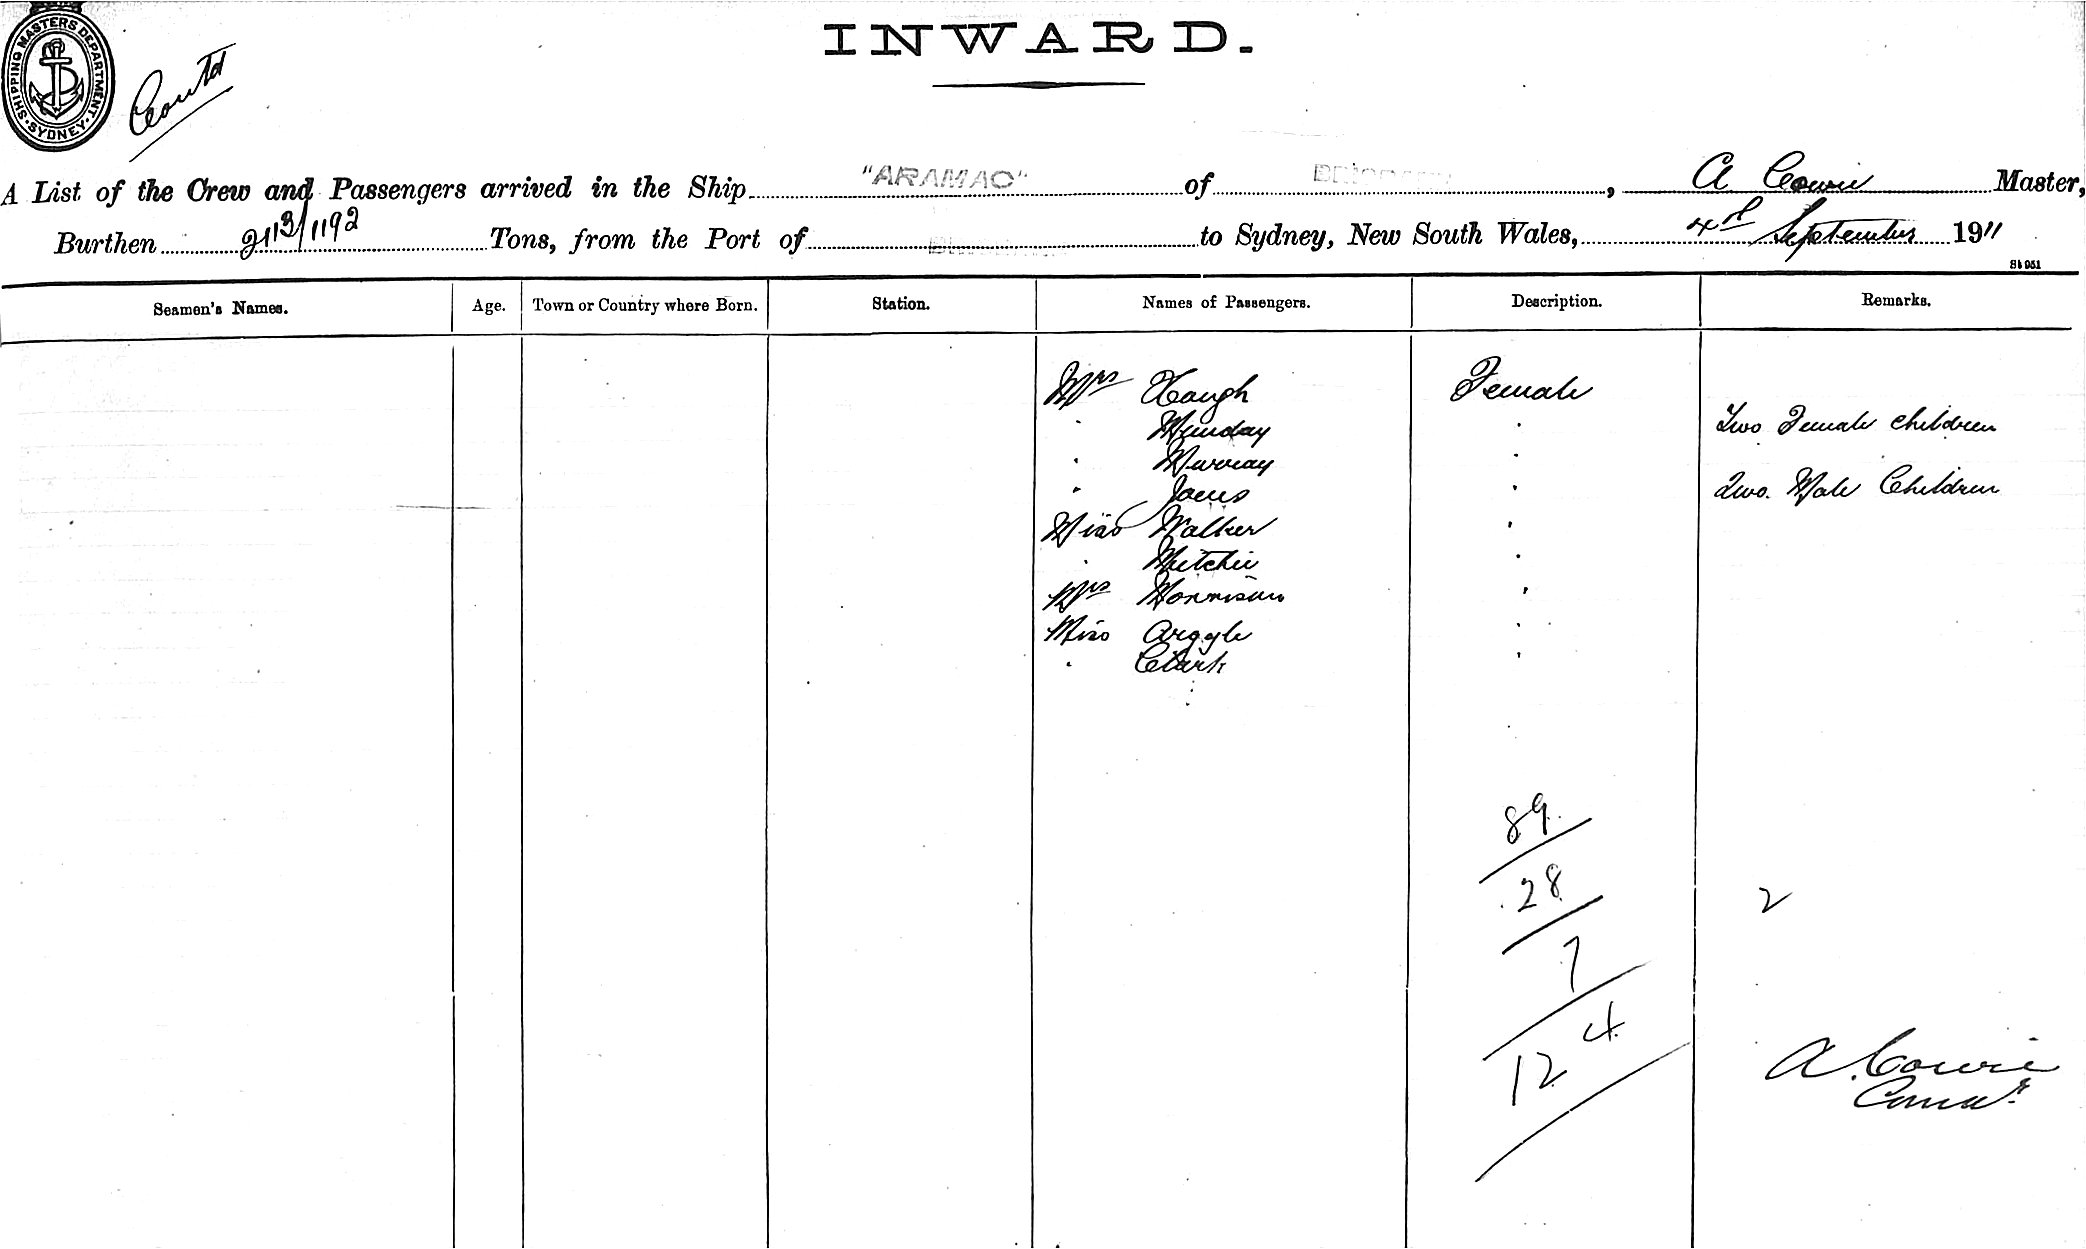 INWARD.
SHIPPING MASTERS DEPARTMENT
SYDNEY
Contd
A List of the Crew and Passengers arrived in the Ship "ARAMAC" of , A Cowie Master,
Burthen 2113/1192 Tons, from the Port of to Sydney, New South Wales, 4th September 1911
Seamen's Names. Age. Town or Country where Born. Station. Names of Passengers. Description. Remarks.
Mrs Haugh Female
" Munday " Two Female Children
" Murray "
" " Two Male Children
Miss Walker "
" Mitchie "
Mrs Morrison "
Miss Argyle "
" Clark "
89
28 2
7
4
12
A. Cowie